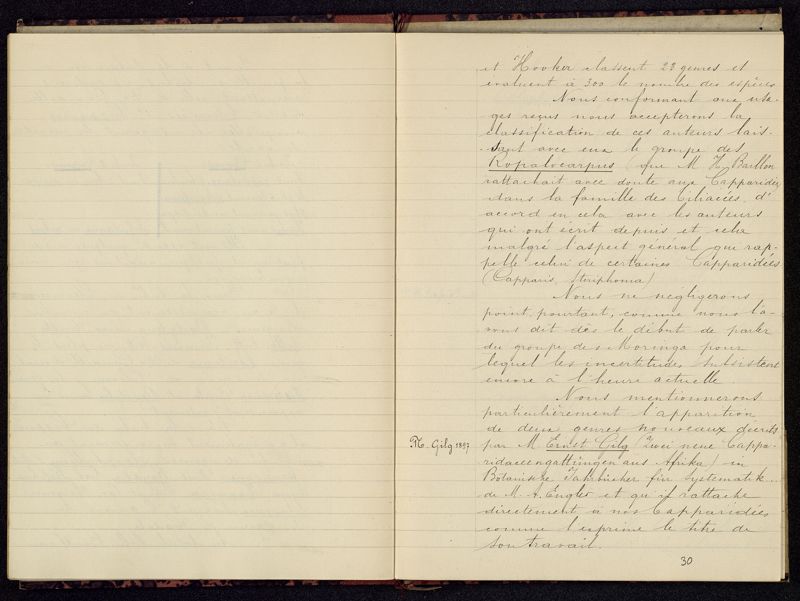 et Hooker classent 23 genres et
évaluent à 300 le nombre des espèces
Nous conformant aux usa-
ges reçus nous accepterons la
classification de ces auteurs lais-
sant avec eux le groupe des
Ropalocarpus (que M H. Baillon
rattachait avec doute aux Capparidées
dans la famille des Tiliacées, d'
accord en cela avec les auteurs
qui ont écrit depuis et cela
malgré l'aspect général qui rap-
pelle celui de certaines Capparidées
(Capparis, Steriphoma)
Nous ne négligerons
point, pourtant, comme nous l'a-
vons dit dès le début de parler
du groupe des Moringa pour
lequel les incertitudes subsistent
encore à l'heure actuelle.
Nous mentionnerons
particulièrement l'apparition
de deux genres nouveaux décrits
M. Gilg 1897
par M Ernst Gilg (Zwei neue Cappa-
ridaceengattungen aus Afrika) in
Botanische Jahrbücher für Systematik..
de M. A. Engler et qu'il rattache
directement à nos Capparidées
comme l'exprime le titre de
son travail.
30